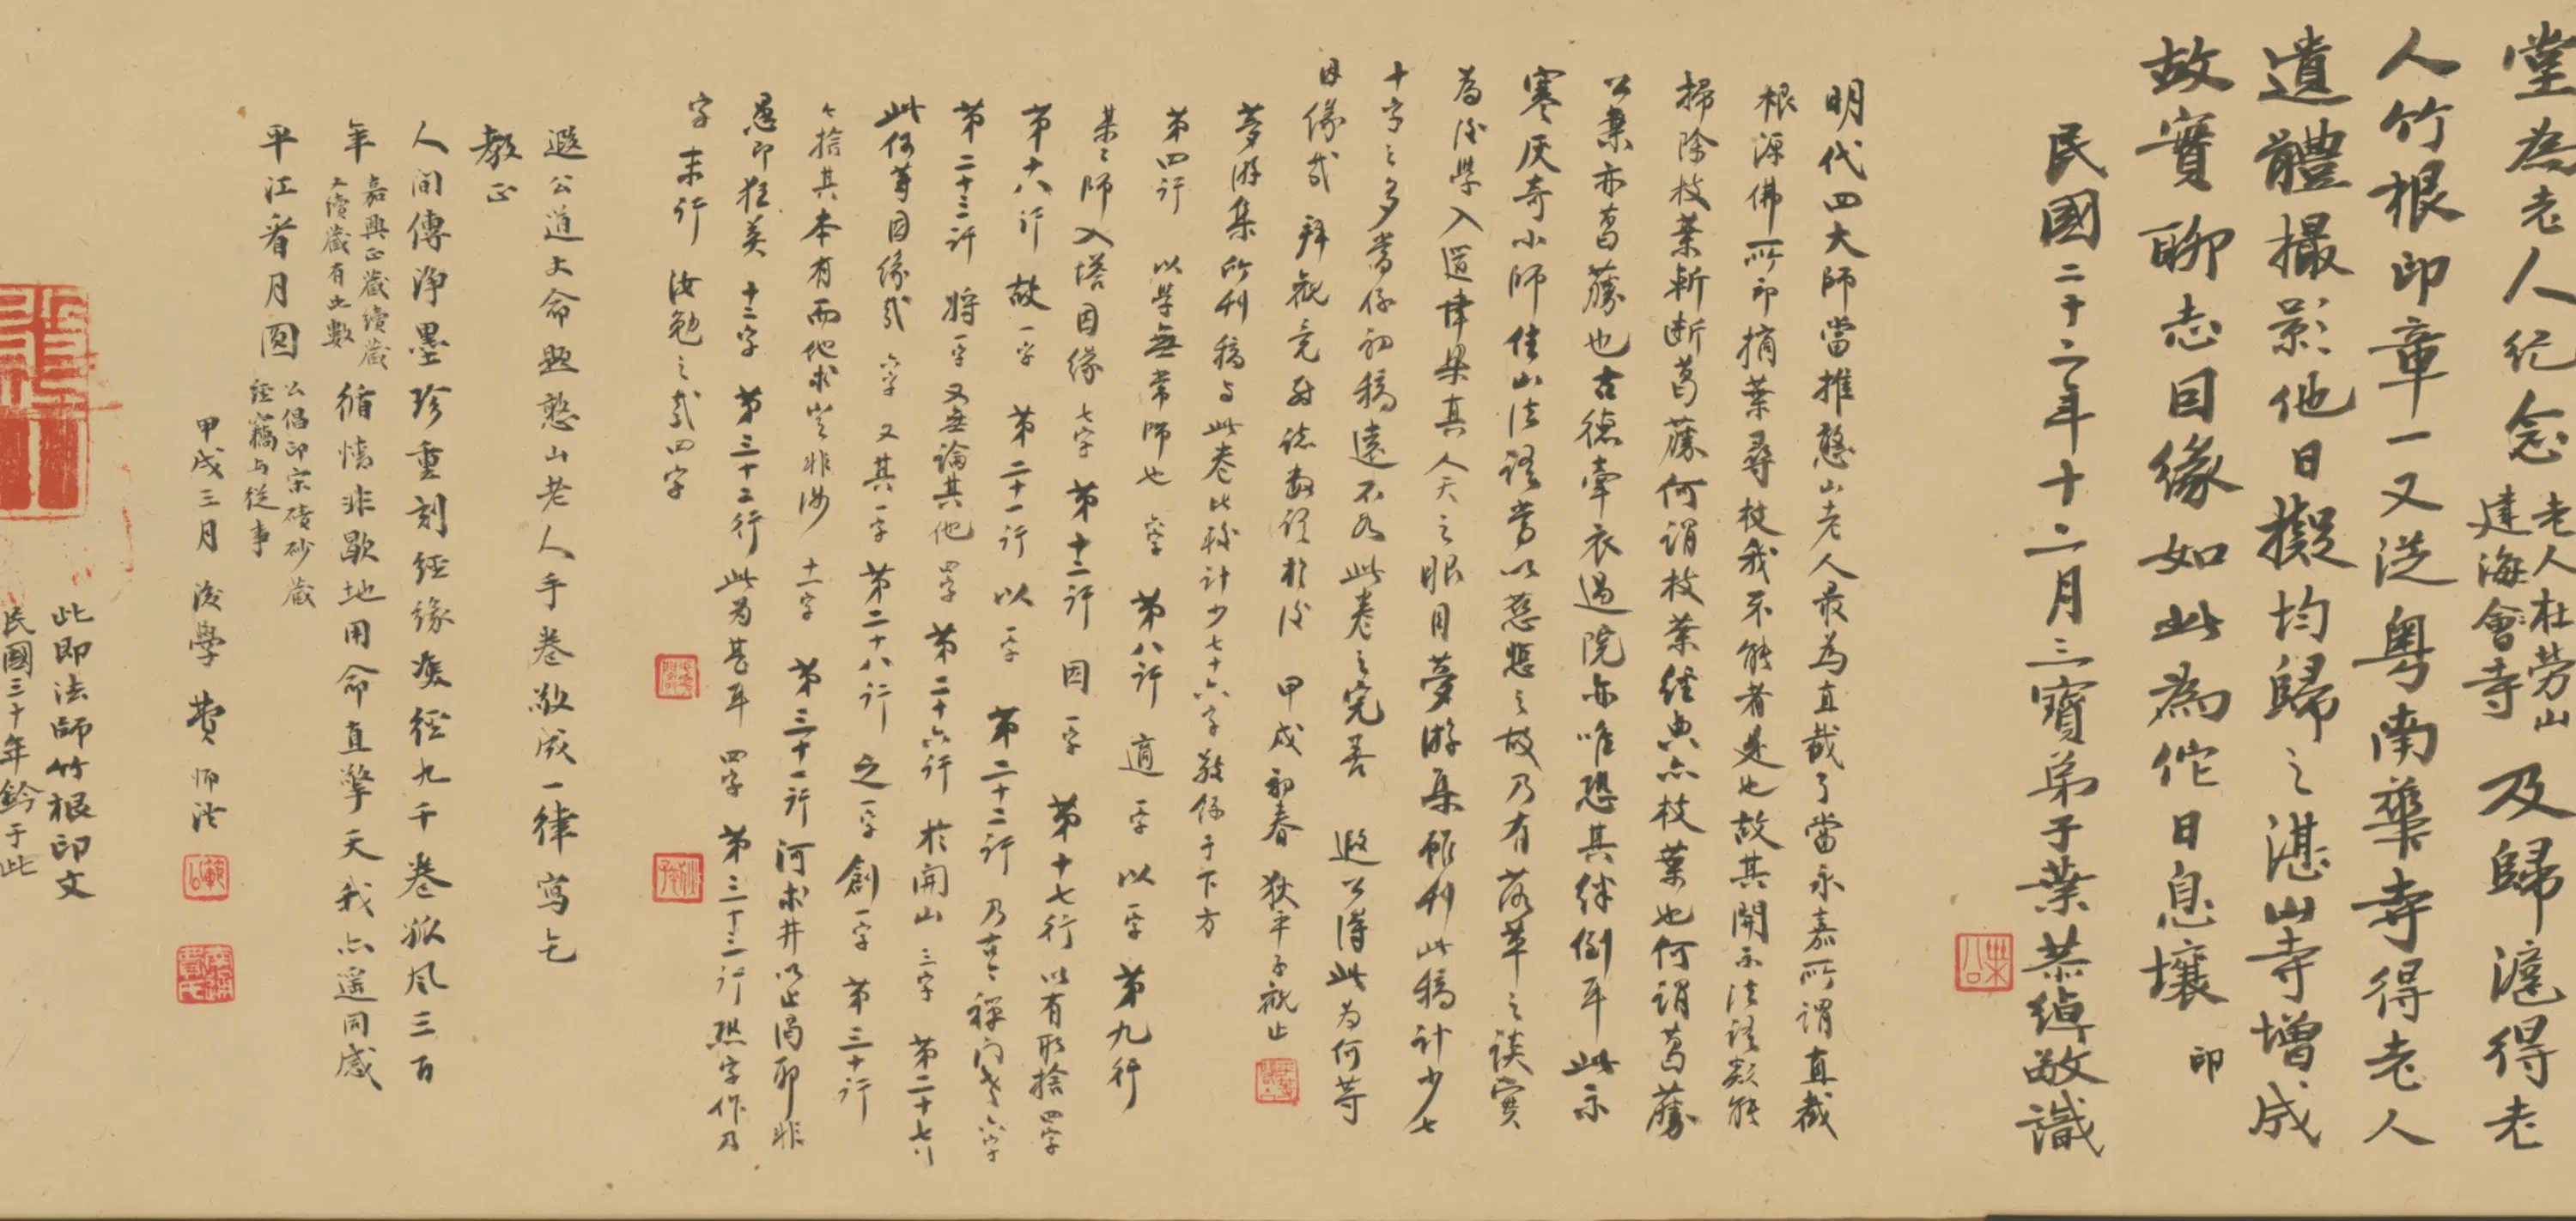 堂為老人紀念老人在勞山建海會寺及歸滬得老
人竹根印章一又從粵南華寺得老人
遺體撮影他日擬均歸之湛山寺增成
故實聊志因緣如此為佗日息壤 印
民國二十二年十二月三寶弟子葉恭綽敬識
明代四大師當推憨山老人最為直截了當永嘉所謂直截
根源佛所印摘葉尋枝我不能者是也故其開示法語類能
掃除枝葉斬斷葛藤何謂枝葉經典亦枝葉也何謂葛藤
公案亦葛藤也古德牽衣過院亦唯恐其絆倒耳此示
寒灰奇小師住山法語當以慈悲之故乃有落草之談實
為後學入道津梁真人天之眼目夢游集雖刊此稿計少七
十字之多當係初稿遠不如此卷之完善 遐公得此為何等
因緣哉 拜觀竟敬誌數語於後 甲戌初春 狄平子觀止
夢游集所刊稿与此卷比務計少七十六字敬係于下方
第四行 以學無常師也 六字 第八行 適一字 以一字 第九行
某之師入塔因緣 七字 第十二行 因一字 第十七行 以有取捨四字
第十八行 故一字 第二十一行 以一字 第二十二行 乃古之禪門也六字
第二十三行 將一字 又無論其他 四字 第二十六行 於開山 三字 第二十七行
此何等因緣哉 六字 又其一字 第二十八行 之一字 創一字 第三十行
捨其本有而他求豈非汝 十一字 第三十一行 河求井以止渴耶非
愚即狂矣 十二字 第三十二行 此為甚耳 四字 第三十三行 照字作乃
字 末行 汝勉之哉四字
遐公道丈命題憨山老人手卷敬成一律寫乞
教正
人間傳淨墨珍重刻經緣廢經九千卷派風三百
年嘉興正藏續藏又續藏有此數循情非歇地用命直擎天我亦遙同感
平江看月圓公倡印宋磧砂藏經竊与從事
甲戌三月 後學 費師洪
此即法師竹根印文
民國三十年鈐于此